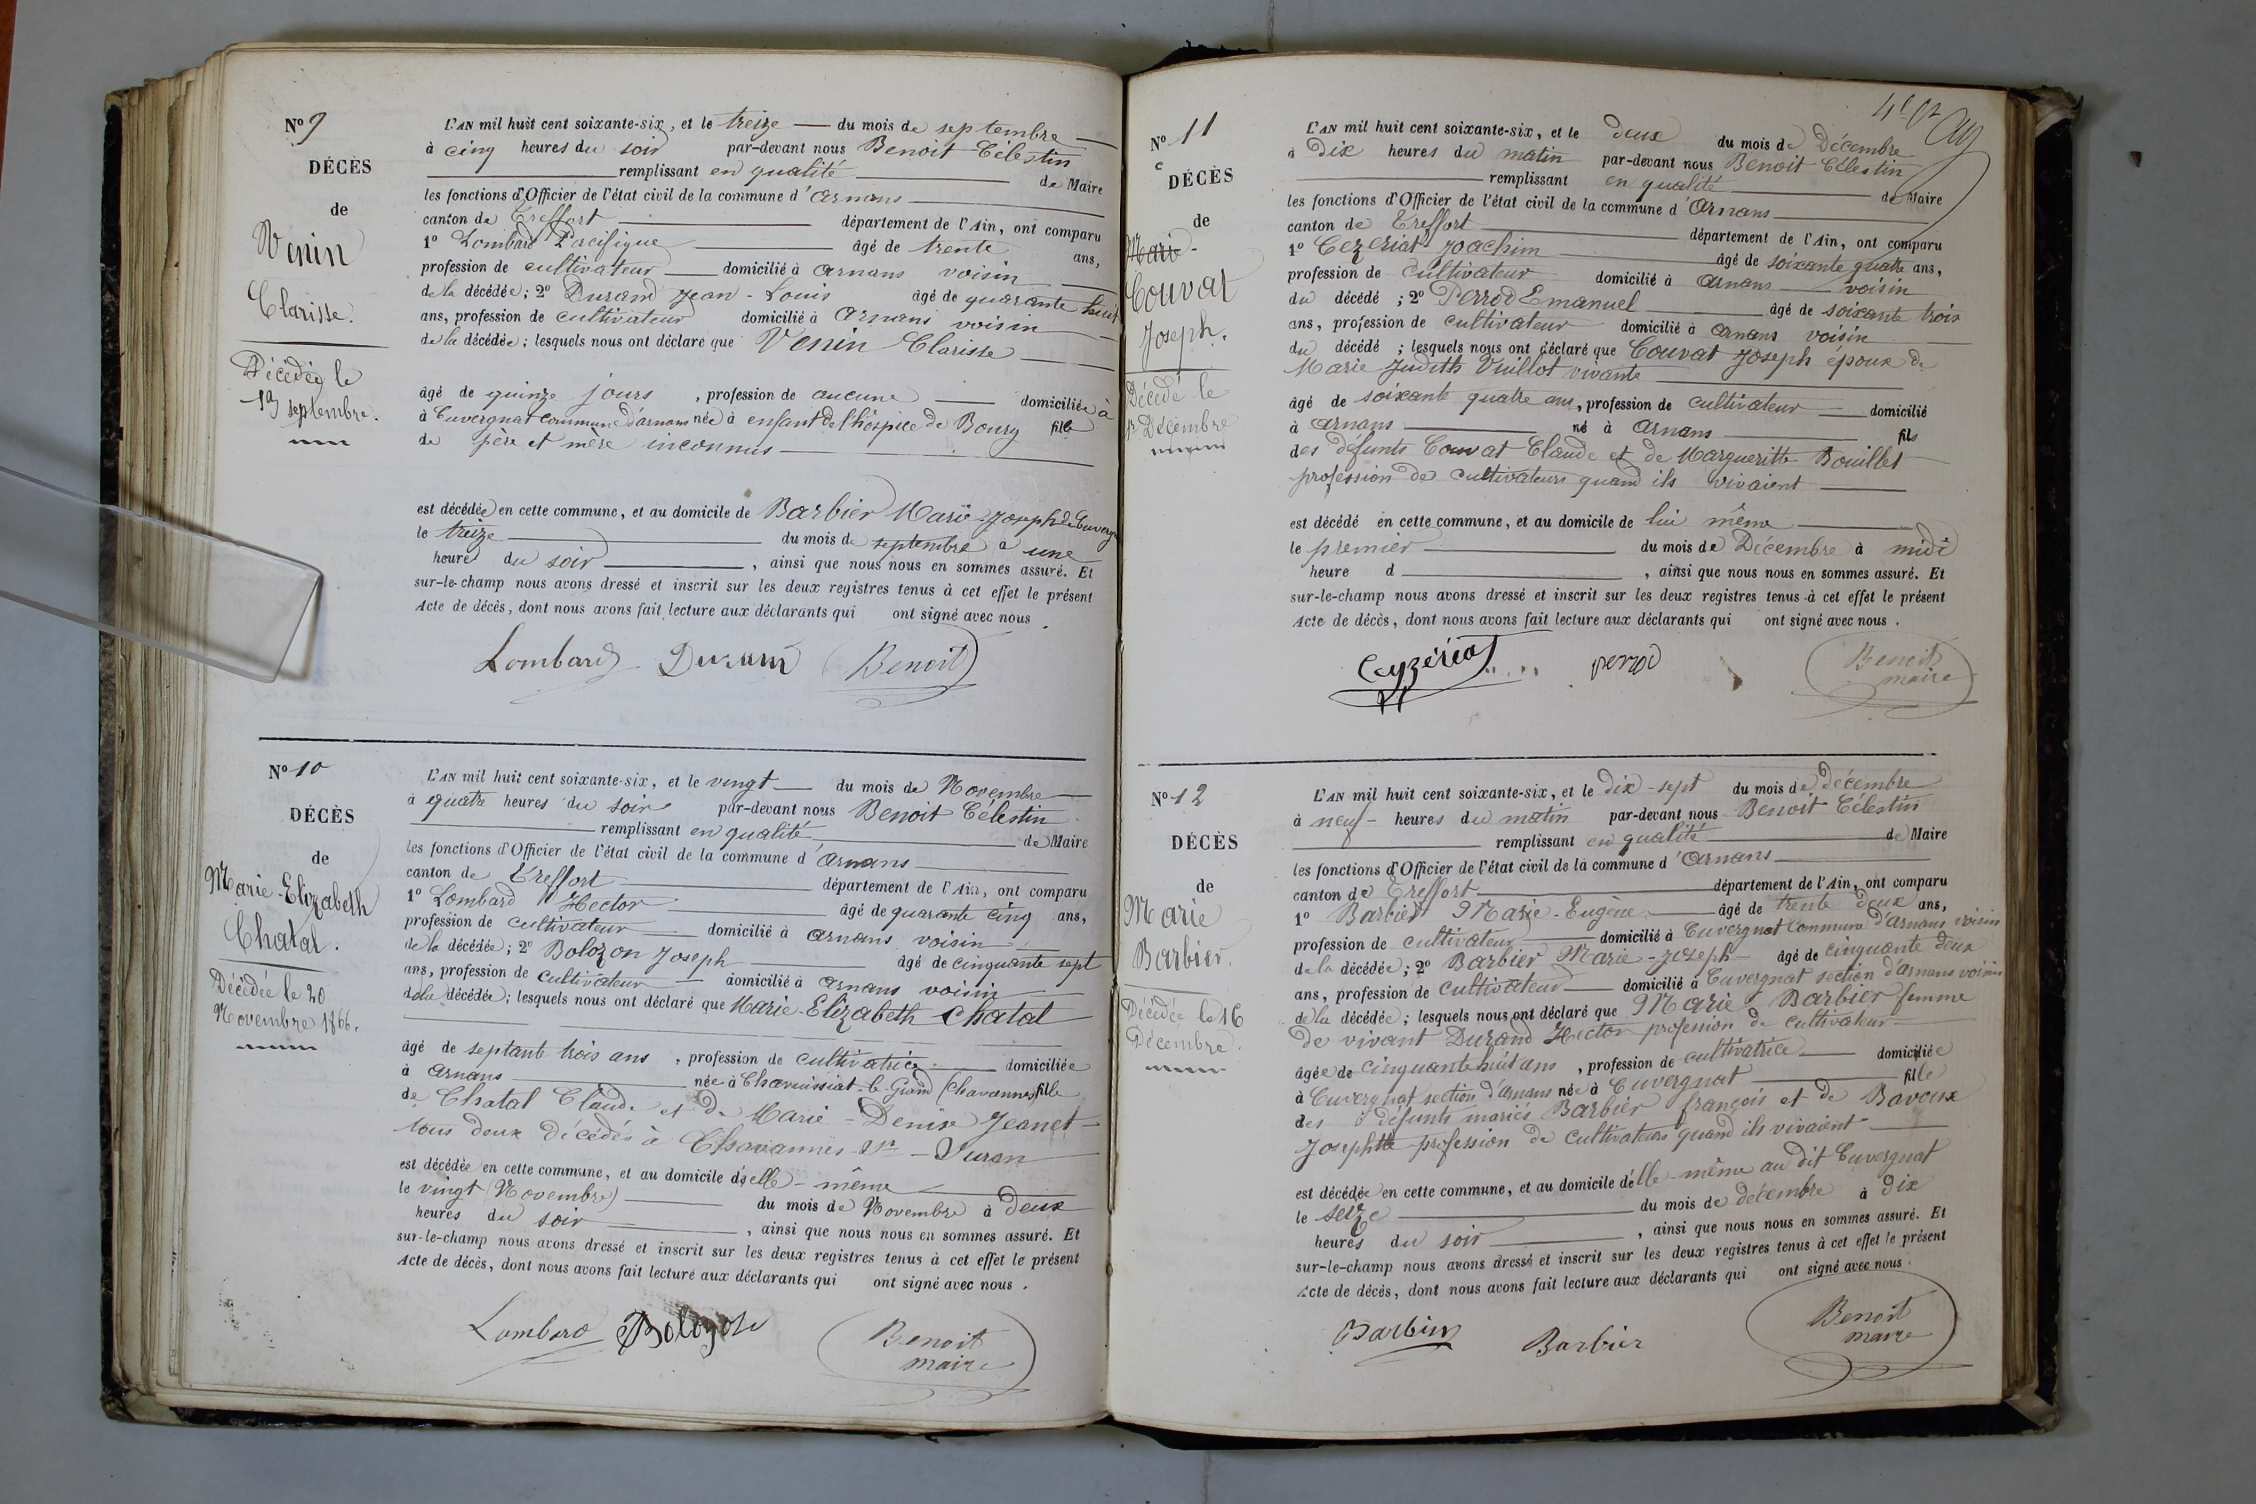 N° 9
DÉCÈS
de
Venin
Clarisse.
Décédée le
13 septembre.
L'AN mil huit cent soixante-six, et le treize du mois de septembre
à cinq heures du soir par-devant nous Benoit Célestin
remplissant en qualité de Maire
les fonctions d'Officier de l'état civil de la commune d'Arnans
canton de Treffort département de l'Ain, ont comparu
1° Lombard Pacifique âgé de trente ans,
profession de cultivateur domicilié à Arnans voisin
de la décédée; 2° Durand Jean-Louis âgé de quarante huit
ans, profession de cultivateur domicilié à Arnans voisin
de la décédée; lesquels nous ont déclaré que Venin Clarisse
âgé de quinze jours, profession de aucune domiciliée à
à Cuvergnat commune d'arnans née à enfant de l'hospice de Bourg fille
de père et mère inconnus
est décédée en cette commune, et au domicile de Barbier Marie-Joseph de Cuverg
le treize du mois de septembre à une
heure du soir, ainsi que nous nous en sommes assuré. Et
sur-le-champ nous avons dressé et inscrit sur les deux registres tenus à cet effet le présent
Acte de décès, dont nous avons fait lecture aux déclarants qui ont signé avec nous.
Lombard Durand Benoit
N° 10
DÉCÈS
de
Marie-Elizabeth
Chatal.
Décédée le 20
Novembre 1866.
L'AN mil huit cent soixante-six, et le vingt du mois de Novembre
à quatre heures du soir par-devant nous Benoit Célestin
remplissant en qualité de Maire
les fonctions d'Officier de l'état civil de la commune d'Arnans
canton de Treffort département de l'Ain, ont comparu
1° Lombard Hector âgé de quarante cinq ans,
profession de cultivateur domicilié à Arnans voisin
de la décédée; 2° Bolozon Joseph âgé de cinquante sept
ans, profession de cultivateur domicilié à Arnans voisin
de la décédée; lesquels nous ont déclaré que Marie-Elizabeth Chatal
âgé de septante trois ans, profession de cultivatrice domiciliée
à Arnans née à Chavuissiat-le-Grand (Chavannes) fille
de Chatal Claude et de Marie-Denise Jeanet
tous deux décédés à Chavannes-sr-Suran
est décédée en cette commune, et au domicile d'elle-même
le vingt (Novembre) du mois de Novembre à deux
heures du soir, ainsi que nous nous en sommes assuré. Et
sur-le-champ nous avons dressé et inscrit sur les deux registres tenus à cet effet le présent
Acte de décès, dont nous avons fait lecture aux déclarants qui ont signé avec nous.
Lombard Bolozon Benoit
maire
N° 11
DÉCÈS
de
Mari-
Couvat
Joseph.
Décédé le
1er Décembre
L'AN mil huit cent soixante-six, et le deux du mois de Décembre
à Dix heures du matin par-devant nous Benoit Célestin
remplissant en qualité de Maire
les fonctions d'Officier de l'état civil de la commune d'Arnans
canton de Treffort département de l'Ain, ont comparu
1° Cezeriat Joachim âgé de soixante quatre ans,
profession de cultivateur domicilié à Arnans voisin
du décédé; 2° Perrod Emanuel âgé de soixante trois
ans, profession de cultivateur domicilié à Arnans voisin
du décédé; lesquels nous ont déclaré que Couvat Joseph époux de
Marie Judith Vuillot vivante
âgé de soixante quatre ans, profession de cultivateur domicilié
à Arnans né à Arnans fils
des défunts Couvat Claude et de Margueritte Bouillet
profession de cultivateurs quand ils vivaient
est décédé en cette commune, et au domicile de lui même
le premier du mois de Décembre à midi
heure d, ainsi que nous nous en sommes assuré. Et
sur-le-champ nous avons dressé et inscrit sur les deux registres tenus à cet effet le présent
Acte de décès, dont nous avons fait lecture aux déclarants qui ont signé avec nous.
Cezériat perrod Benoit
maire
N° 12
DÉCÈS
de
Marie
Barbier.
Décédée le 16
Décembre.
L'AN mil huit cent soixante-six, et le dix-sept du mois de décembre
à neuf heures du matin par-devant nous Benoit Célestin
remplissant en qualité de Maire
les fonctions d'Officier de l'état civil de la commune d'Arnans
canton de Treffort département de l'Ain, ont comparu
1° Barbier Marie-Eugène âgé de trente deux ans,
profession de cultivateur domicilié à Cuvergnat Commune d'Arnans voisin
de la décédée; 2° Barbier Marie-Joseph âgé de cinquante deux
ans, profession de cultivateur domicilié à Cuvergnat section d'Arnans voisin
de la décédée; lesquels nous ont déclaré que Marie Barbier femme
de vivant Durand Hector profession de cultivateur
âgée de cinquante huit ans, profession de cultivatrice domiciliée
à Cuvergnat section d'Arnans née à Cuvergnat fille
des défunts mariés Barbier françois et de Bavoux
Josephte profession de cultivateurs quand ils vivaient
est décédée en cette commune, et au domicile d'elle-même au dit Cuvergnat
le seize du mois de décembre à dix
heures du soir, ainsi que nous nous en sommes assuré. Et
sur-le-champ nous avons dressé et inscrit sur les deux registres tenus à cet effet le présent
Acte de décès, dont nous avons fait lecture aux déclarants qui ont signé avec nous.
Barbier Barbier Benoit
maire